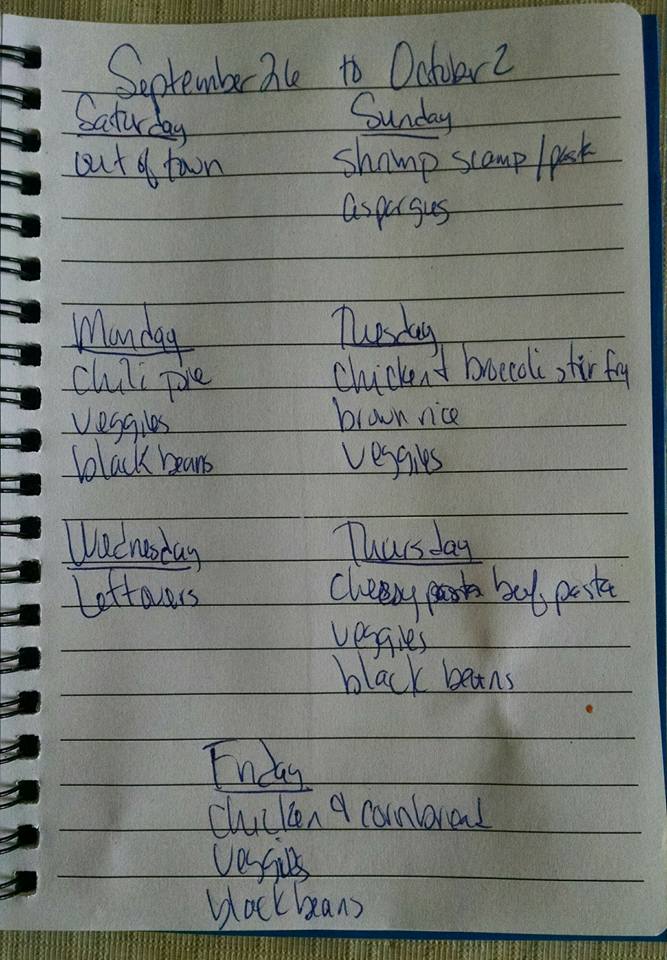 September 26 to October 2
Saturday
out of town
Sunday
shrimp scamp / pasta
aspargus
Monday
Chili pie
veggies
black beans
Tuesday
Chicken & broccoli stir fry
brown rice
veggies
Wednesday
Leftovers
Thursday
Cheesy pasta beef pasta
veggies
black beans
Friday
Chicken & cornbread
veggies
black beans